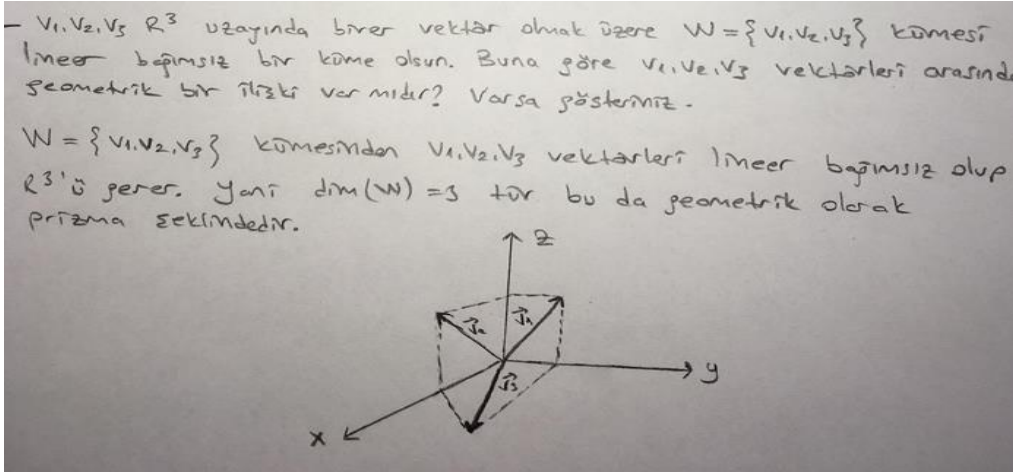 - V₁, V₂, V₃ R³ uzayında birer vektör olmak üzere W = { V₁, V₂, V₃ } kümesi
lineer bağımsız bir küme olsun. Buna göre V₁, V₂, V₃ vektörleri arasında
geometrik bir ilişki var mıdır? Varsa gösteriniz.
W = { V₁, V₂, V₃ } kümesinden V₁, V₂, V₃ vektörleri lineer bağımsız olup
R³'ü gerer. Yani dim(W) = 3 tür bu da geometrik olarak
prizma şeklindedir.
z
V₂ V₁
y
V₃
x